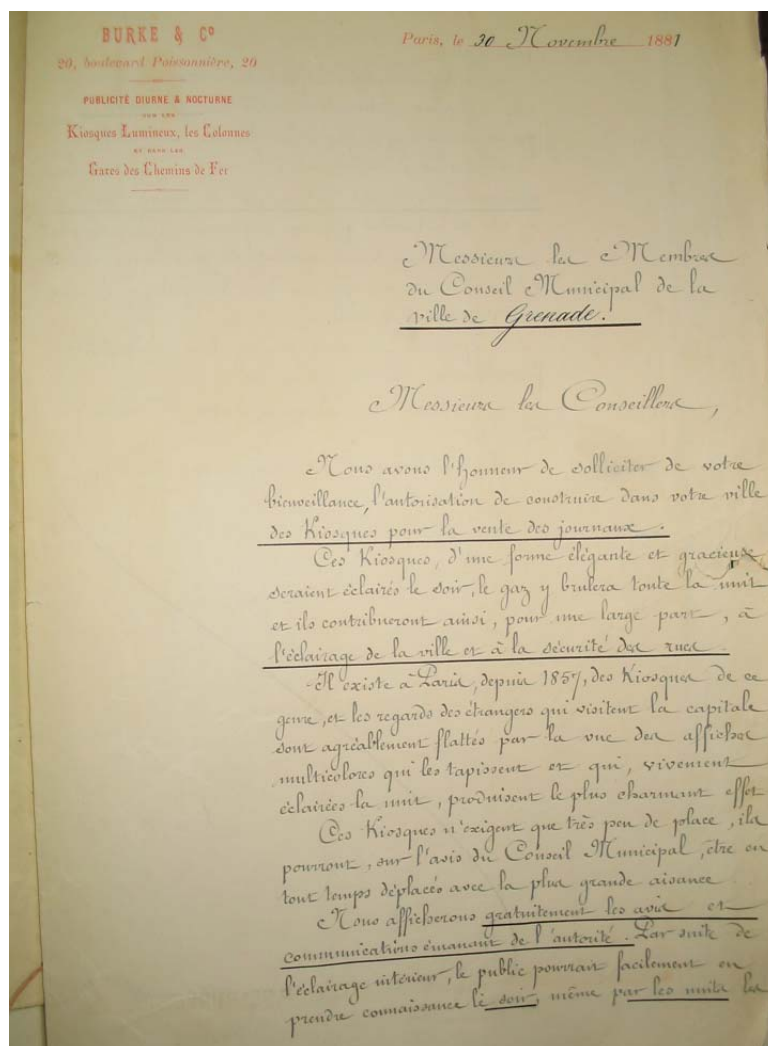 BURKE & Cº
20, boulevard Poissonnière, 20
PUBLICITÉ DIURNE & NOCTURNE
SUR LES
Kiosques Lumineux, les Colonnes
ET DANS LES
Gares des Chemins de Fer
Paris, le 30 Novembre 1881
Messieurs les Membres
du Conseil Municipal de la
ville de Grenade.
Messieurs les Conseillers,
Nous avons l'honneur de solliciter de votre
bienveillance, l'autorisation de construire dans votre ville
des Kiosques pour la vente des journaux.
Ces Kiosques, d'une forme élégante et gracieuse
seraient éclairés le soir, le gaz y brulera toute la nuit
et ils contribueront ainsi, pour une large part, à
l'éclairage de la ville et à la sécurité des rues.
Il existe à Paris, depuis 1857, des Kiosques de ce
genre, et les regards des étrangers qui visitent la capitale
sont agréablement flattés par la vue des affiches
multicolores qui les tapissent et qui, vivement
éclairées la nuit, produisent le plus charmant effet
Ces Kiosques n'exigent que très peu de place, ils
pourront, sur l'avis du Conseil Municipal, être en
tout temps déplacés avec la plus grande aisance.
Nous afficherons gratuitement les avis et
communications émanant de l'autorité. Par suite de
l'éclairage intérieur, le public pourrait facilement en
prendre connaissance le soir, même par les nuits les